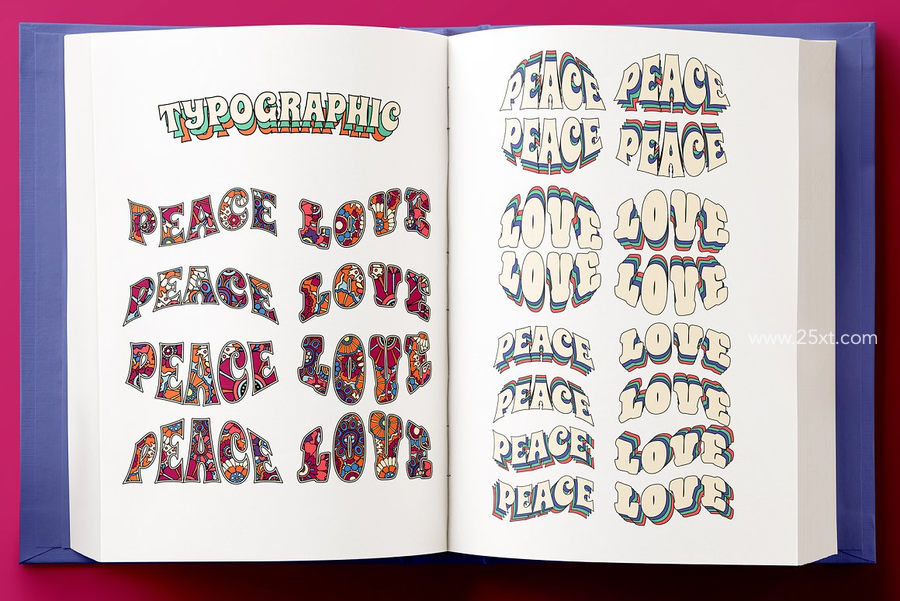 TYPOGRAPHIC
PEACE LOVE
PEACE LOVE
PEACE LOVE
PEACE LOVE
PEACE PEACE
PEACE PEACE
LOVE LOVE
LOVE LOVE
PEACE LOVE
PEACE LOVE
PEACE LOVE
PEACE LOVE
www.25xt.com